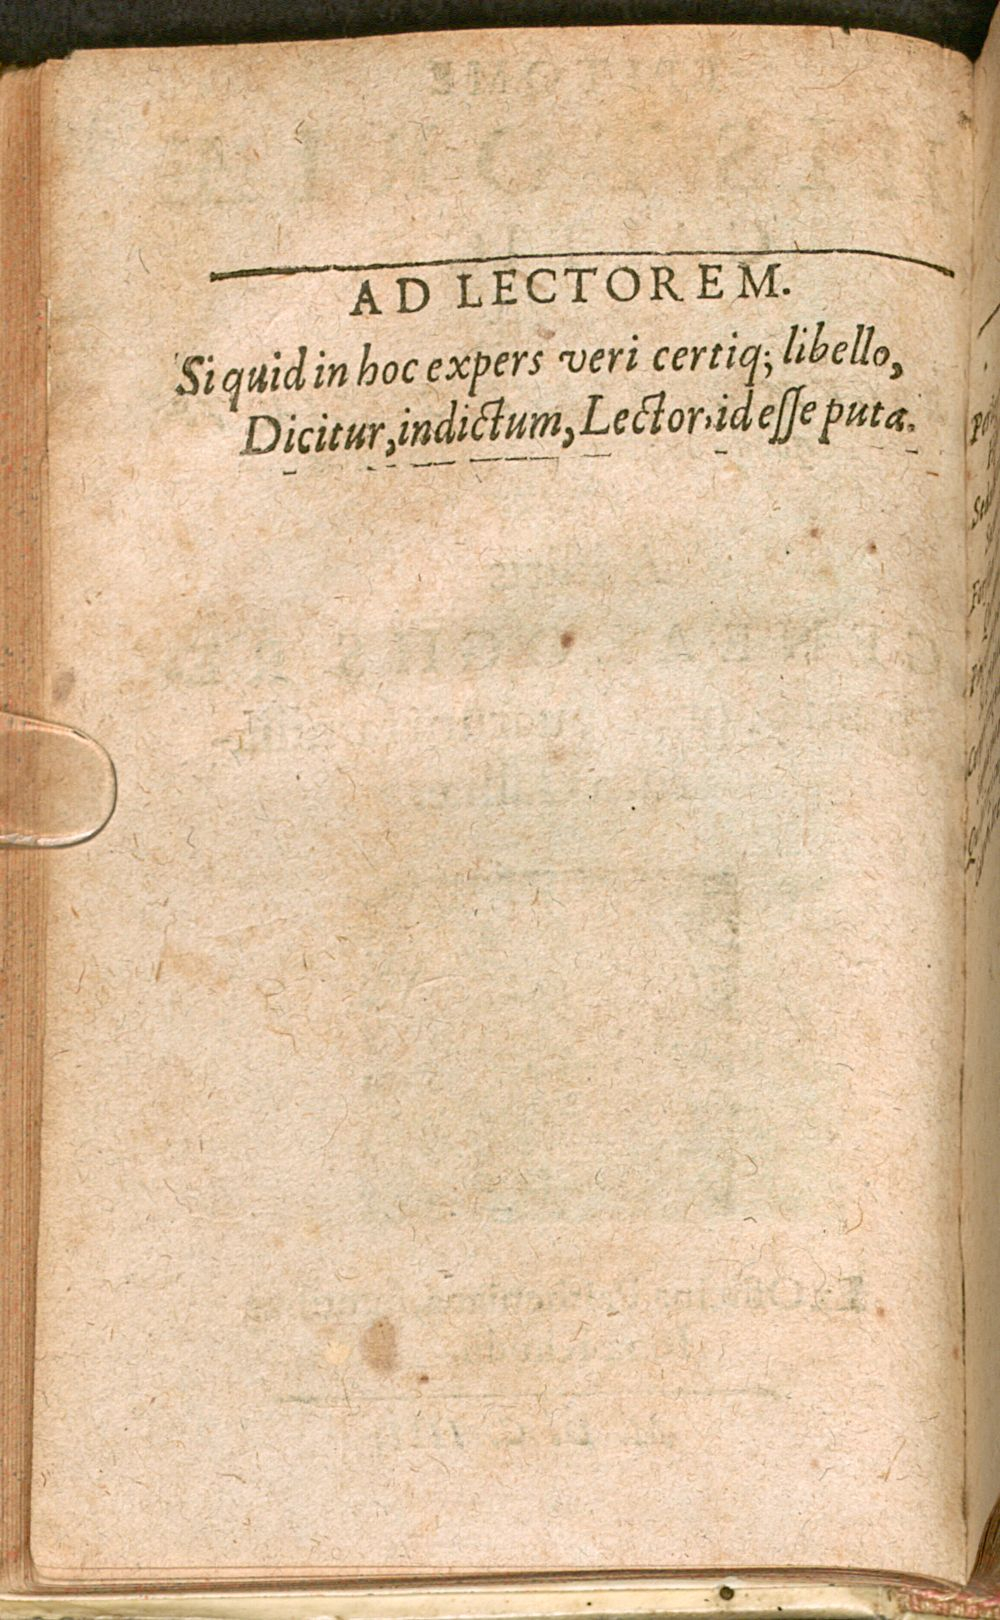 AD LECTOREM.
Si quid in hoc expers veri certiq; libello,
Dicitur, indictum, Lector, id eſſe puta.